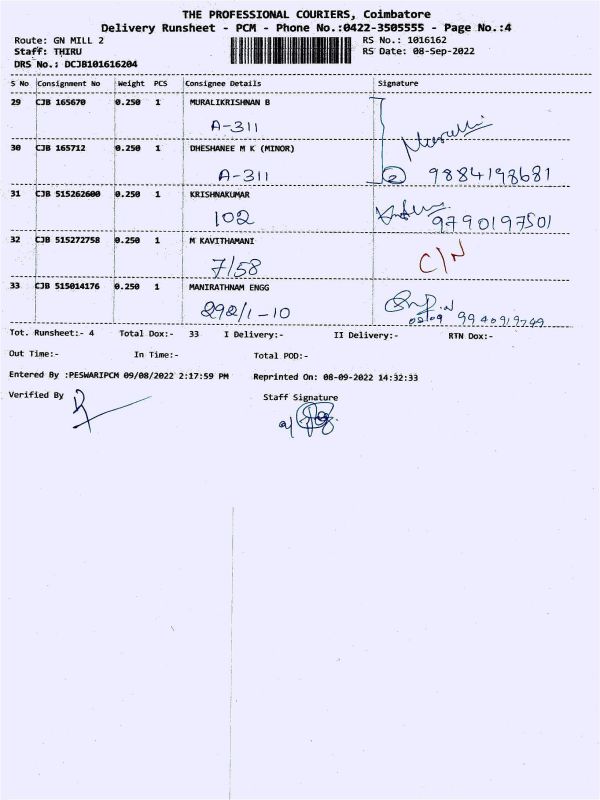 THE PROFESSIONAL COURIERS, Coimbatore
Delivery Runsheet - PCM - Phone No.:0422-3505555 - Page No.:4
Route: GN MILL 2 RS No.: 1016162
Staff: THIRU RS Date: 08-Sep-2022
DRS No.: DCJB101616204
S No Consignment No Weight PCS Consignee Details Signature
29 CJB 165670 0.250 1 MURALIKRISHNAN B
A-311
30 CJB 165712 0.250 1 DHESHANEE M K (MINOR)
A-311 2 9884198681
31 CJB 515262600 0.250 1 KRISHNAKUMAR
102 9790197501
32 CJB 515272758 0.250 1 M KAVITHAMANI
7/58 C/N
33 CJB 515014176 0.250 1 MANIRATHNAM ENGG
292/1-10
08/09 9940919749
Tot. Runsheet:- 4 Total Dox:- 33 I Delivery:- II Delivery:- RTN Dox:-
Out Time:- In Time:- Total POD:-
Entered By :PESWARIPCM 09/08/2022 2:17:59 PM Reprinted On: 08-09-2022 14:32:33
Verified By Staff Signature